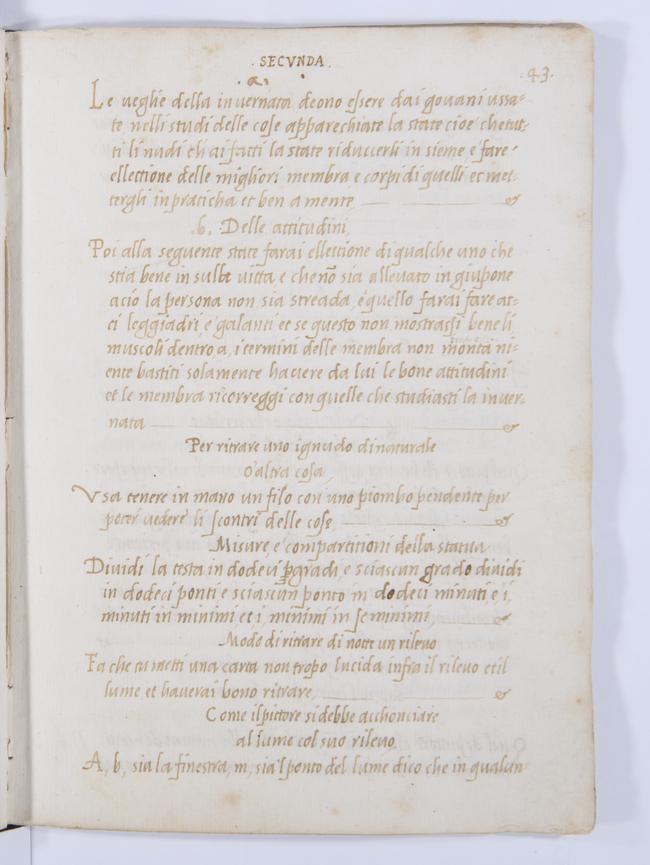 . SECVNDA .
.43.
.a.
Le veglie della invernata deono essere dai govani ussa-
te nelli studi delle cose apparechiate la state cioe che tut-
ti li nudi ch ai fatti la state riducerli in sieme, e fare
ellectione delle migliori membra, e corpi di quelli et met-
tergli in praticha et ben a mente
.b. Delle attitudini
Poi alla seguente state farai ellectione di qualche uno che
stia bene in sulla vitta, e che nõ sia allevato in giupone
acio la persona non sia streada, e quello farai fare at-
ti leggiadri, e galanti et se questo non mostrassi bene li
muscoli dentro, a, i termini delle membra non monta ni-
ente bastiti solamente havere da lui le bone attitudini
et le membra ricorreggi con quelle che studiasti la inver-
nata
Per ritrare uno ignudo di naturale
o altra cosa
Vsa tenere in mano un filo con uno piombo pendente per
poter vedere li scontri delle cose
Misure, e compartitioni della statua
Dividi la testa in dodeci gradi, e sciascun grado dividi
in dodeci ponti e sciascun ponto in dodeci minuti, e, i,
minuti in minimi et, i, minimi in seminimi
Modo di ritrare di notte un rilevo
Fa che tu metti una carta non tropo lucida infra il rilevo et il
lume et haverai bono ritrare
Come il pittore si debbe acchonciare
al lume col suo rilevo
A, b, sia la finestra, m, sia 'l ponto del lume dico che in qualun